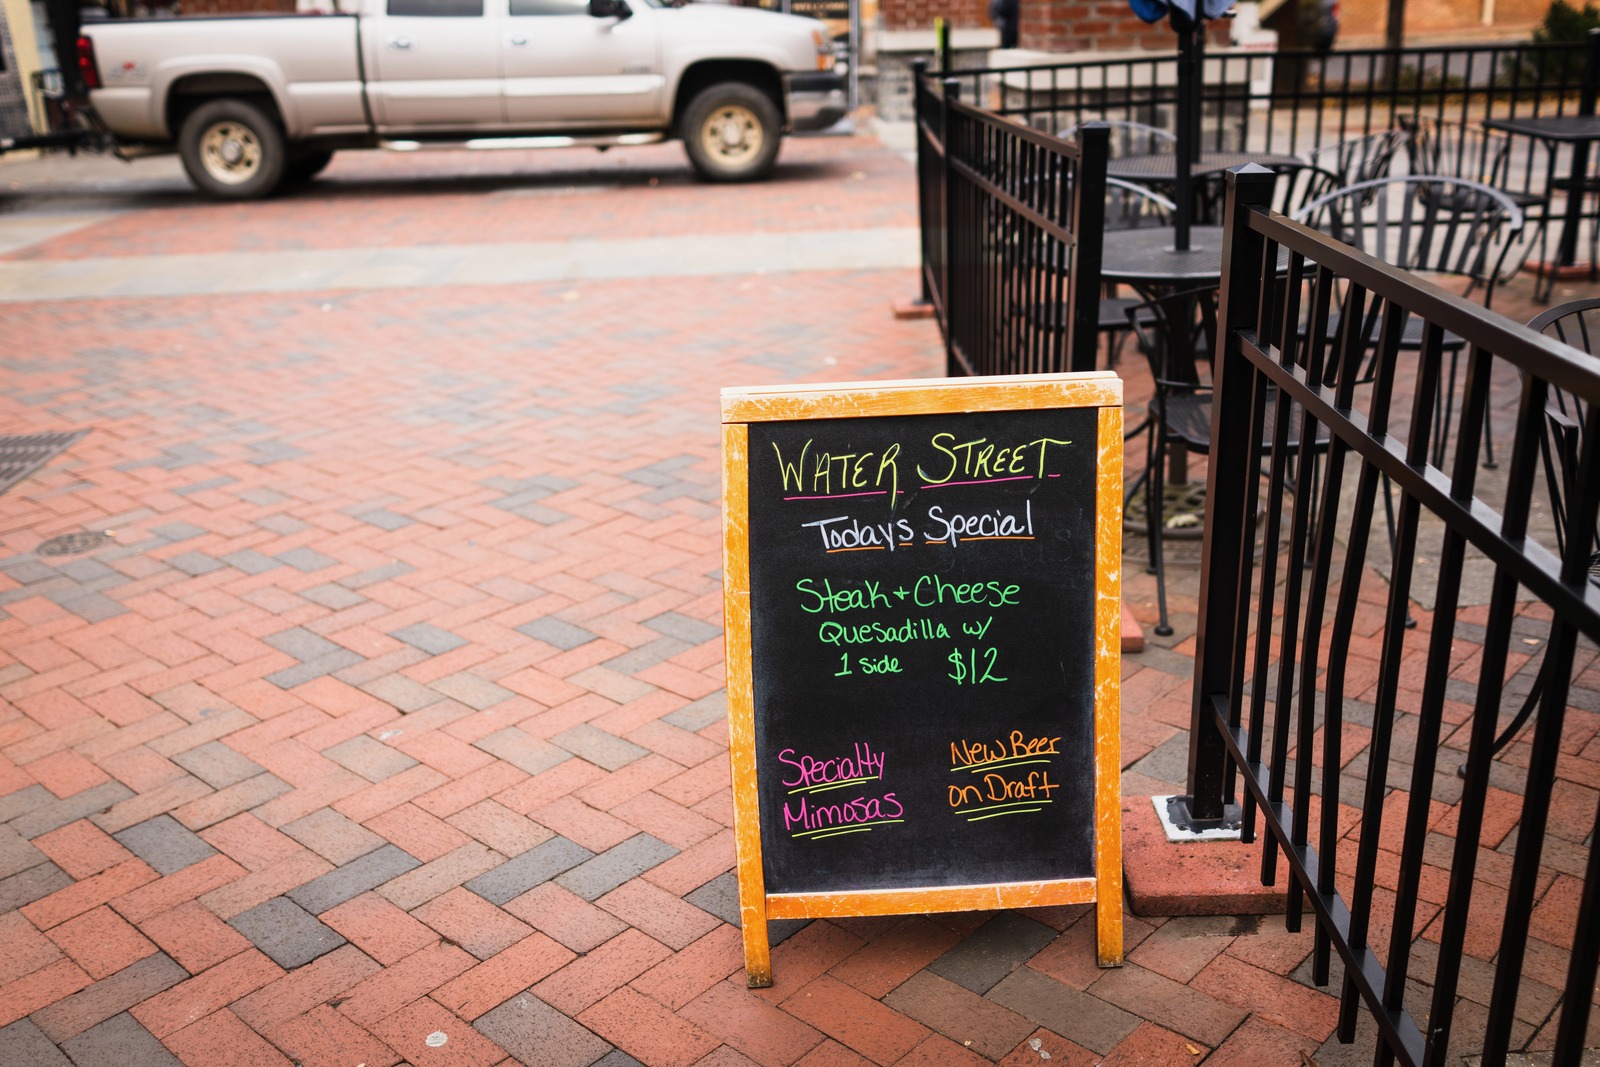 WATER STREET
Todays Special
Steak + Cheese
Quesadilla w/
1 side $12
Specialty
Mimosas
New Beer
on Draft